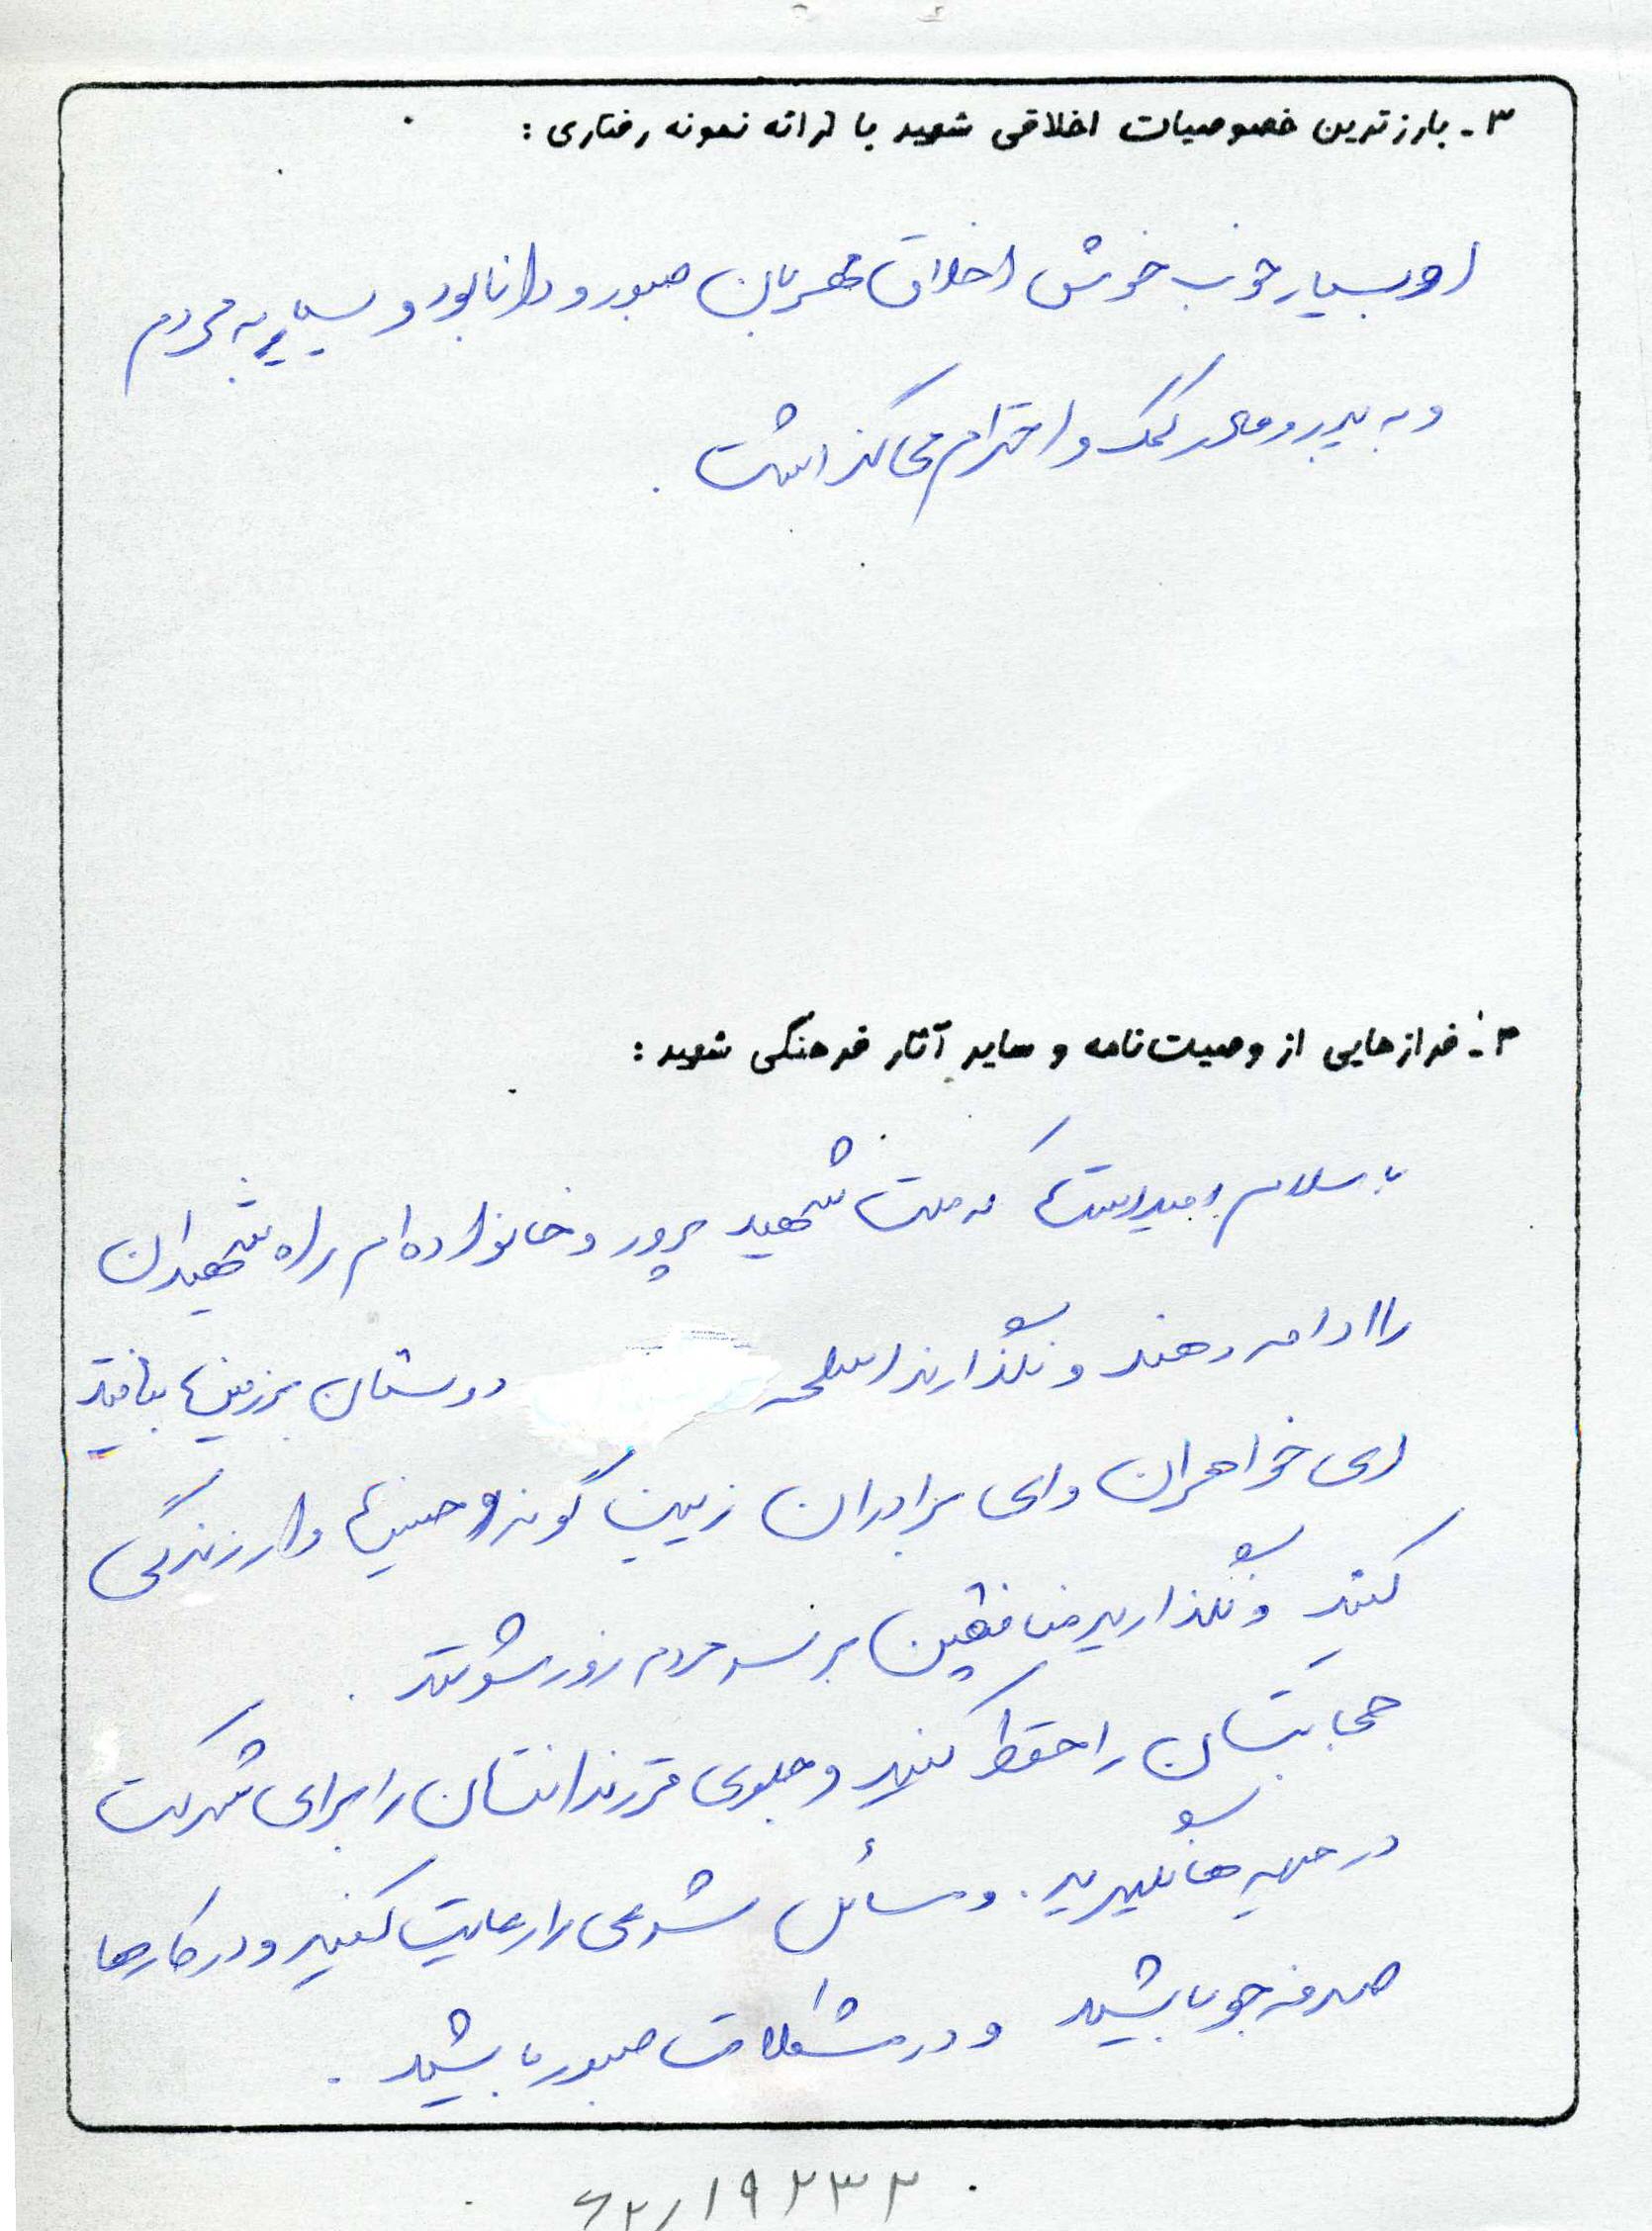 ۳- بارزترین خصوصیات اخلاقی شهید با ارائه نمونه رفتاری :
او بسیار خوب خوش اخلاق مهربان صبور و دانا بود و بسیار به مردم
و به پدر و مادر کمک و احترام می‌گذاشت .
۴- فرازهایی از وصیت‌نامه و سایر آثار فرهنگی شهید :
با سلام امید است که ملت شهید پرور و خانواده‌ام راه شهیدان
را ادامه دهند و نگذارند اسلحه دوستان بر زمین بیافتد
ای خواهران و ای برادران زینب گونه و حسین وار زندگی
کنید و نگذارید منافقین بر سر مردم زور شوند .
حجابتان را حفظ کنید و جلوی فرزندانتان را برای شرکت
در جبهه‌ها نگیرید . و مسائل شرعی را رعایت کنید و در کارها
صرفه جو باشید و در مشکلات صبور باشید .
۶۲/۱۹۲۳۲